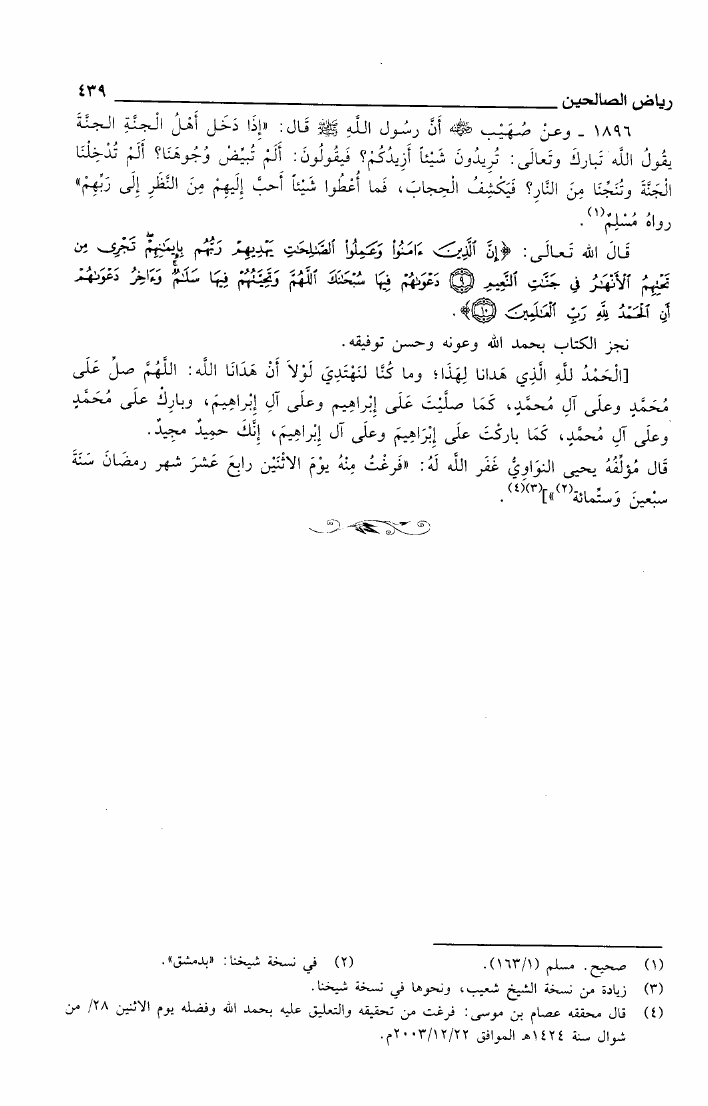 رياض الصالحين ٤٣٩
١٨٩٦ - وعنْ صُهَيْب رضي الله عنه أَنَّ رسُول اللَّهِ ﷺ قَال: «إِذَا دَخَل أَهْلُ الْجنَّةِ الجنَّةَ
يقُولُ اللَّه تَباركَ وتَعالَى: تُرِيدُونَ شَيْئاً أَزِيدُكُمْ؟ فَيقُولُونَ: أَلَمْ تُبيِّضْ وُجُوهَنَا؟ أَلَمْ تُدْخِلْنَا
الْجَنَّةَ وتُنَجِّنَا مِنَ النَّارِ؟ فَيَكْشِفُ الْحِجابَ، فَما أُعْطُوا شَيْئاً أَحبَّ إِلَيهِمْ مِنَ النَّظَرِ إِلَى رَبِّهِمْ»
رواهُ مُسْلِمٌ(١).
قَالَ الله تَعالَى: ﴿إِنَّ ٱلَّذِينَ ءَامَنُواْ وَعَمِلُواْ ٱلصَّٰلِحَٰتِ يَهْدِيهِمْ رَبُّهُم بِإِيمَٰنِهِمْۖ تَجْرِى مِن
تَحْتِهِمُ ٱلْأَنْهَٰرُ فِى جَنَّٰتِ ٱلنَّعِيمِ ٩ دَعْوَىٰهُمْ فِيهَا سُبْحَٰنَكَ ٱللَّهُمَّ وَتَحِيَّتُهُمْ فِيهَا سَلَٰمٌۚ وَءَاخِرُ دَعْوَىٰهُمْ
أَنِ ٱلْحَمْدُ لِلَّهِ رَبِّ ٱلْعَٰلَمِينَ ١٠﴾.
نجز الكتاب بحمد الله وعونه وحسن توفيقه.
[الْحَمْدُ للَّهِ الَّذِي هَدانا لِهَذَا؛ وما كُنَّا لنَهْتَدِيَ لَوْلاَ أَن هَدَانَا اللَّه: اللَّهُمَّ صلِّ عَلَى
مُحَمَّدٍ وعلَى آلِ مُحمَّدٍ، كَمَا صلَّيْتَ عَلَى إِبْراهِيم وعلَى آلِ إِبْراهِيمَ، وبارِكْ علَى مُحَمَّدٍ
وعلَى آلِ مُحمَّدٍ، كَمَا باركْتَ علَى إِبْرَاهِيمَ وعلَى آل إِبْراهِيمَ، إِنَّكَ حمِيدٌ مجِيدٌ.
قَال مُؤلِّفُهُ يحيى النوَاوِيُّ غَفَر اللَّه لَهُ: «فَرغْتُ مِنْهُ يوْمَ الاثْنَيْن رابعَ عَشَرَ شهر رمضَانَ سَنَةَ
سبْعينَ وَستِّمائة(٢)»](٣)(٤).
(١) صحيح. مسلم (١/١٦٣). (٢) في نسخة شيخنا: «بدمشق».
(٣) زيادة من نسخة الشيخ شعيب، ونحوها في نسخة شيخنا.
(٤) قال محققه عصام بن موسى: فرغت من تحقيقه والتعليق عليه بحمد الله وفضله يوم الاثنين ٢٨/ من
شوال سنة ١٤٢٤هـ الموافق ٢٠٠٣/١٢/٢٢م.